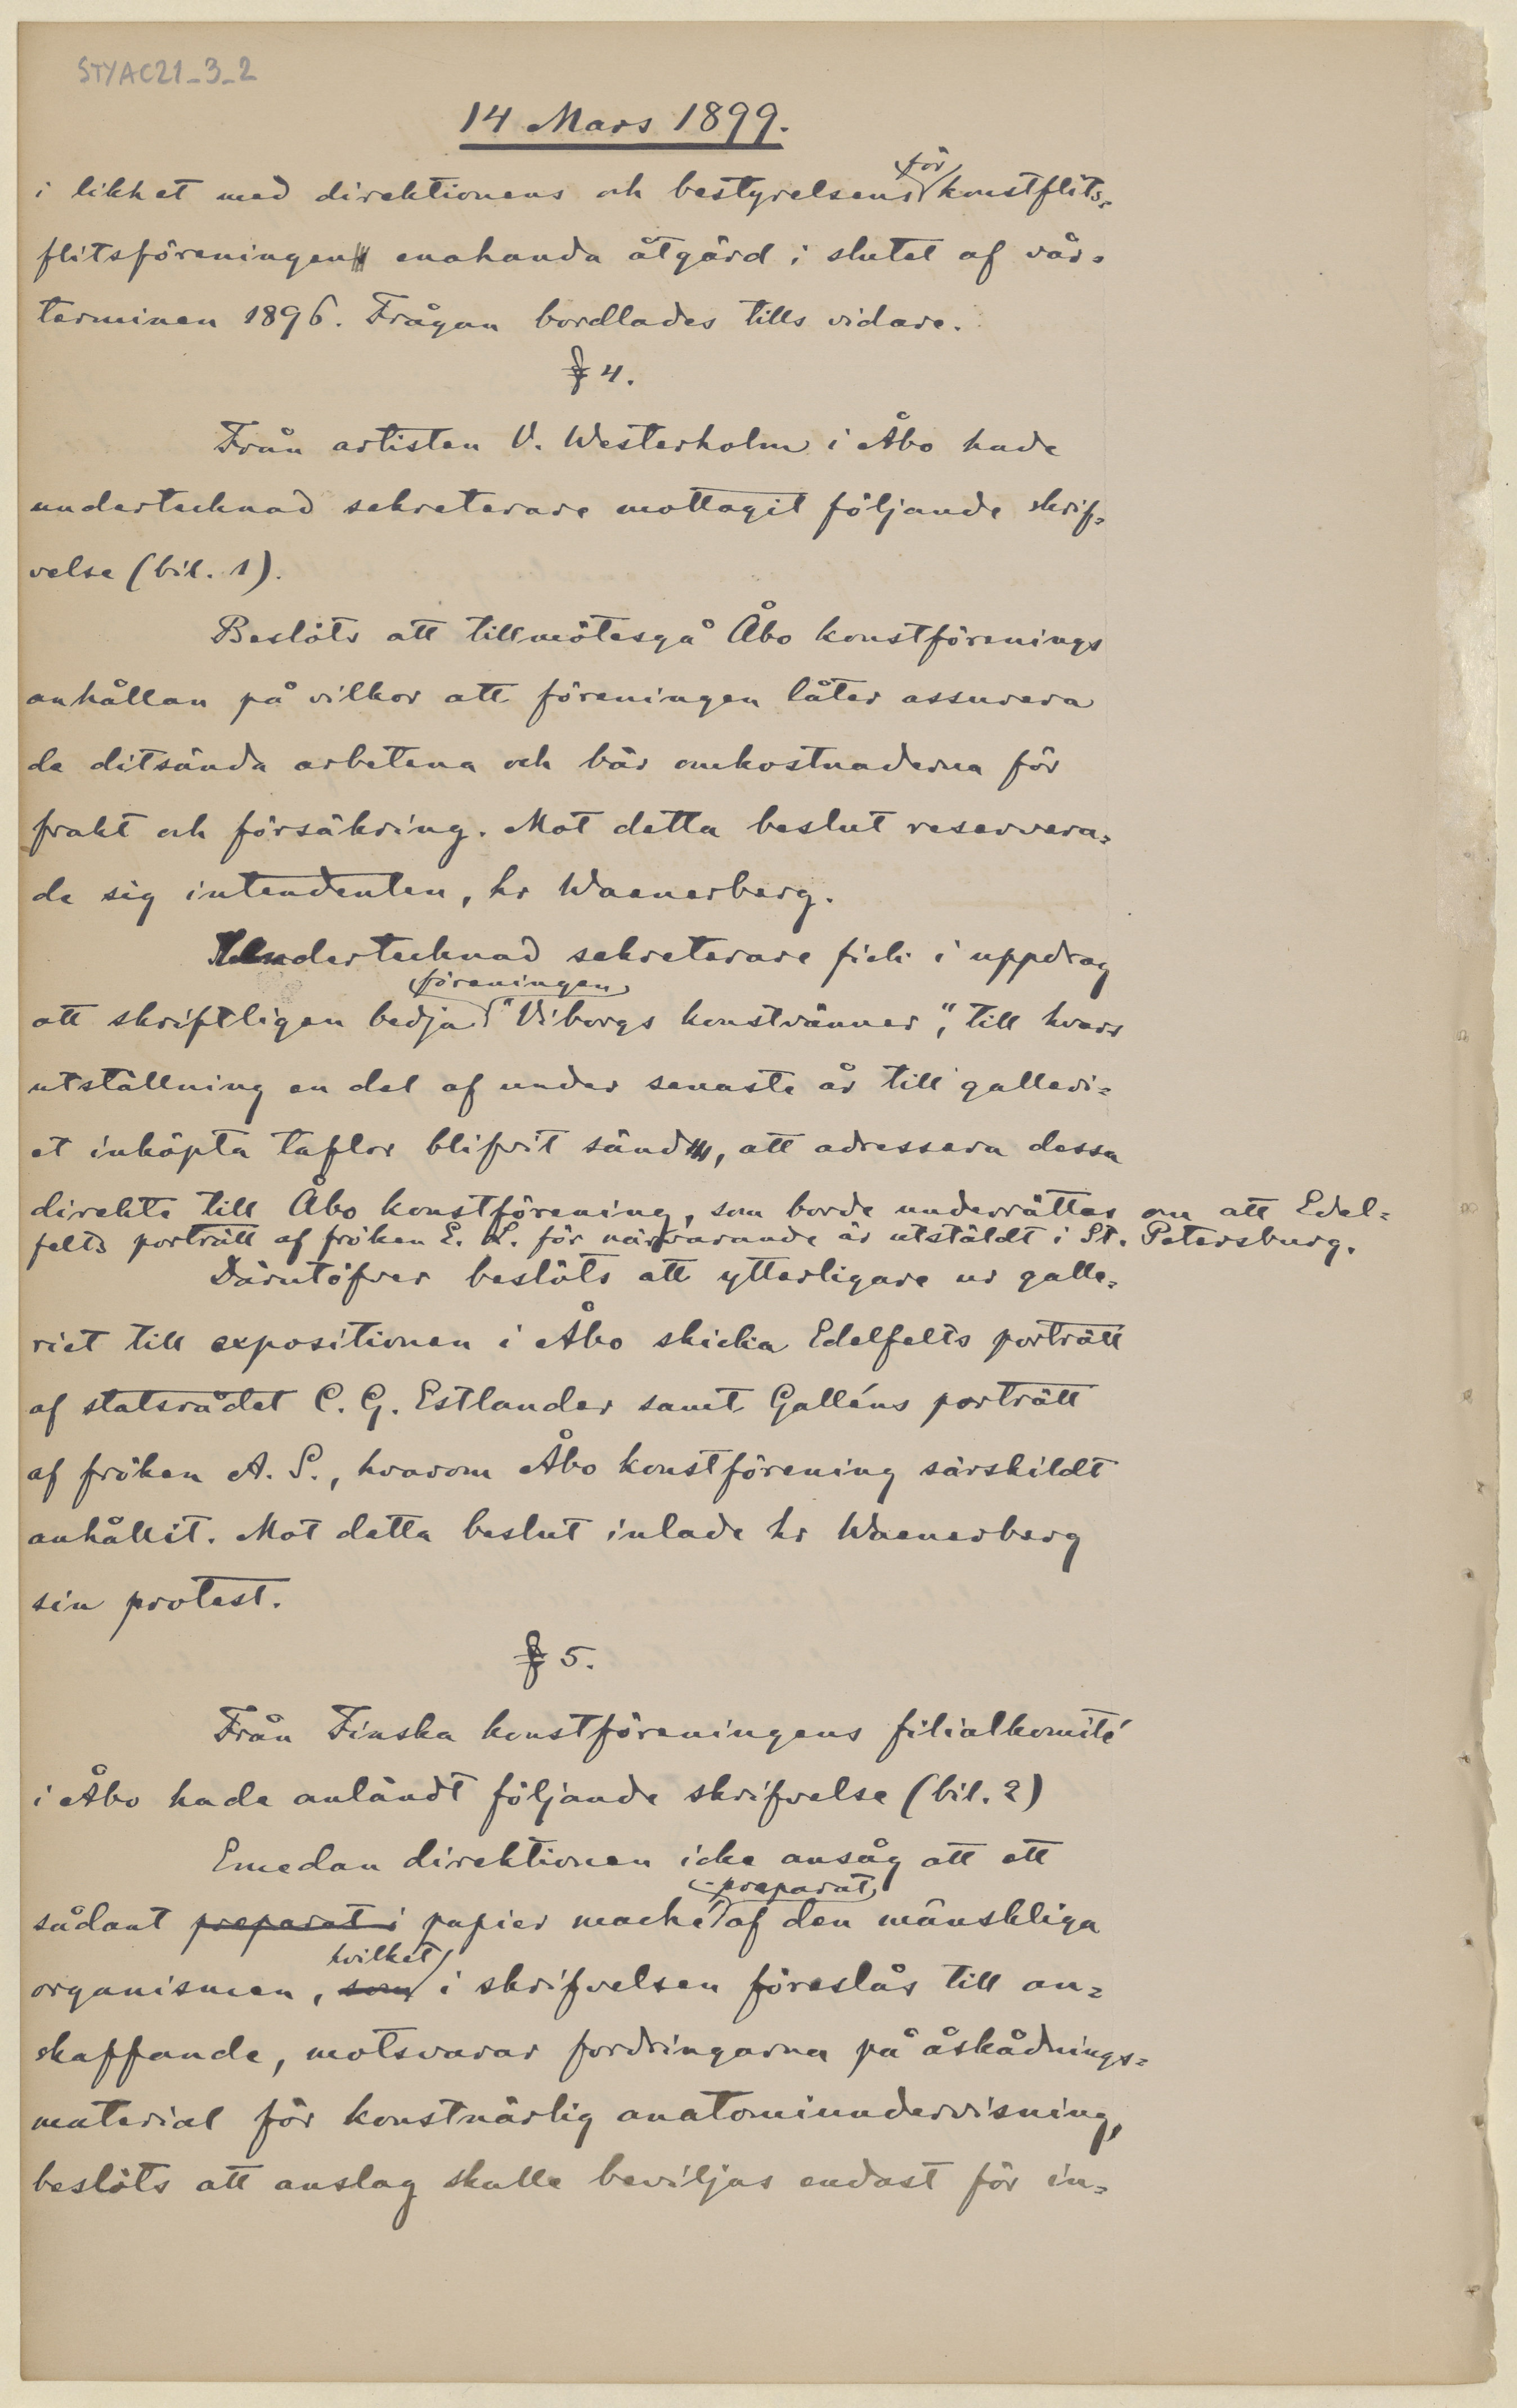 STYAC21_3_2
14 Mars 1899.
i likhet med direktionens och bestyrelsens för konstflits-
flitsföreningen enahanda åtgärd i slutet af vår-
terminen 1896. Frågan bordlades tills vidare.
§ 4.
Från artisten V. Westerholm i Åbo hade
undertecknad sekreterare mottagit följande skrif-
velse (bil. 1).
Beslöts att tillmötesgå Åbo konstförenings
anhållan på vilkor att föreningen låter assurera
de ditsända arbetena och bär omkostnaderna för
frakt och försäkring. Mot detta beslut reservera-
de sig intendenten, hr Waenerberg.
Undertecknad sekreterare fick i uppdrag
att skriftligen bedja föreningen "Viborgs konstvänner", till hvars
utställning en del af under senaste år till galleri-
et inköpta taflor blifvit sänd, att adressera dessa
direkte till Åbo konstförening, som borde underrättas om att Edel-
felts porträtt af fröken E. L. för närvarande är utstäldt i St. Petersburg.
Därutöfver beslöts att ytterligare ur galle-
riet till expositionen i Åbo skicka Edelfelts porträtt
af statsrådet C. G. Estlander samt Galléns porträtt
af fröken A. S., hvarom Åbo konstförening särskildt
anhållit. Mot detta beslut inlade hr Waenerberg
sin protest.
§ 5.
Från Finska konstföreningens filialkomité
i Åbo hade anländt följande skrifvelse (bil. 2)
Emedan direktionen icke ansåg att ett
sådant preparat i papier maché-preparat af den mänskliga
organismen, som hvilket i skrifvelsen föreslås till an-
skaffande, motsvarar fordringarna på åskådnings-
material för konstnärlig anatomiundervisning,
beslöts att anslag skulle beviljas endast för in-